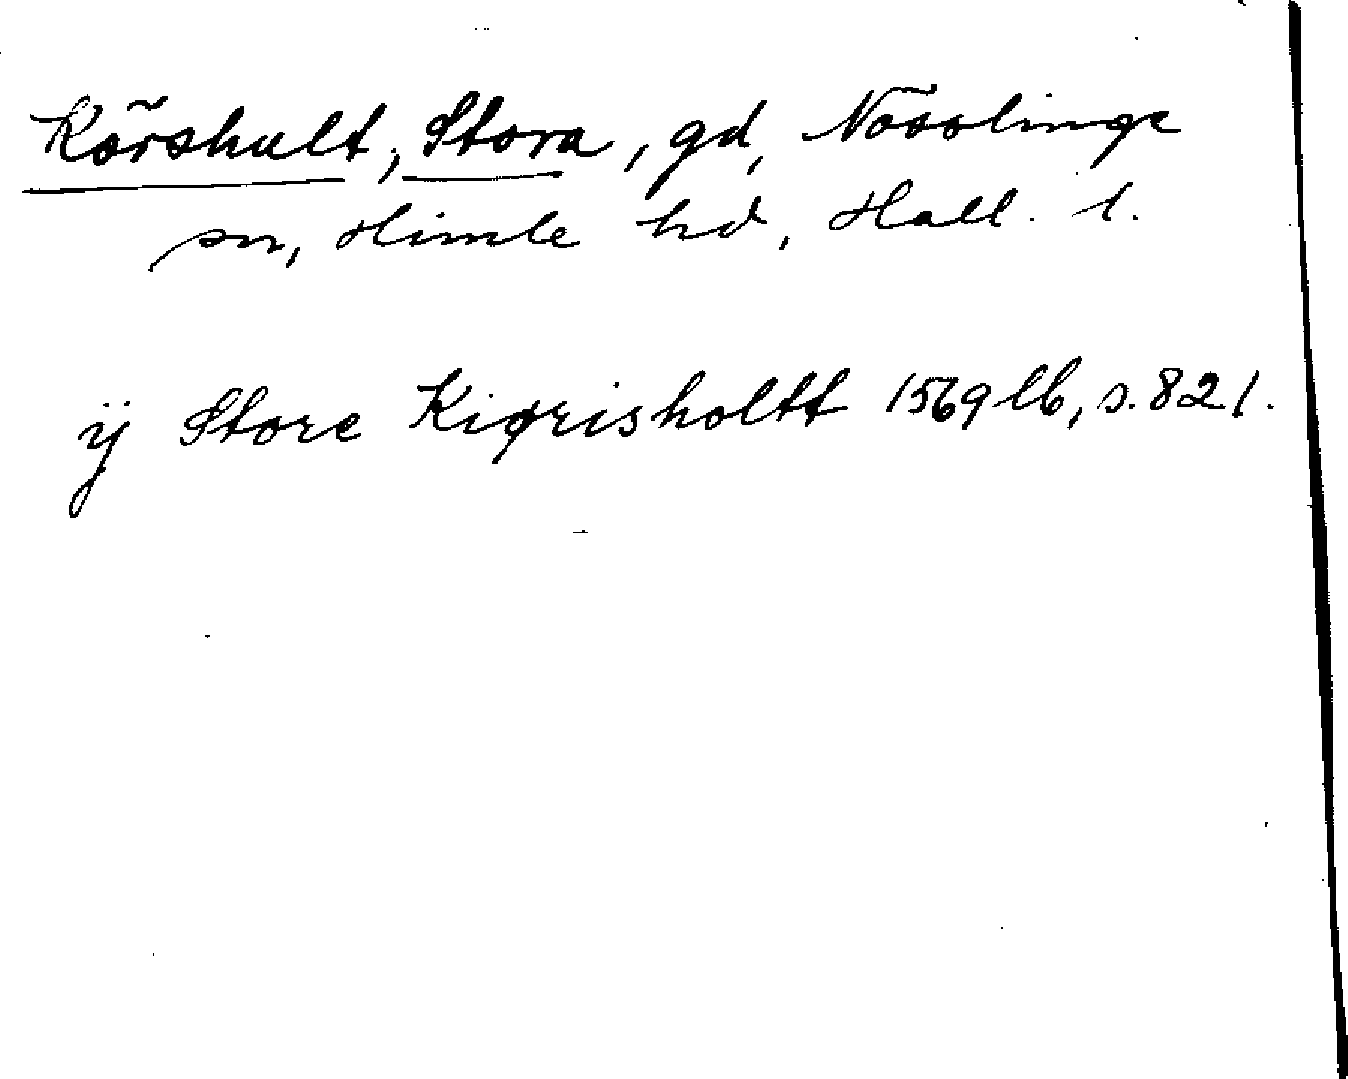 Körshult, Stora, gd, Nösslinge
sn, Himle hd, Hall. l.
ÿ Store Kiørisholtt 1569 lb, s. 821.